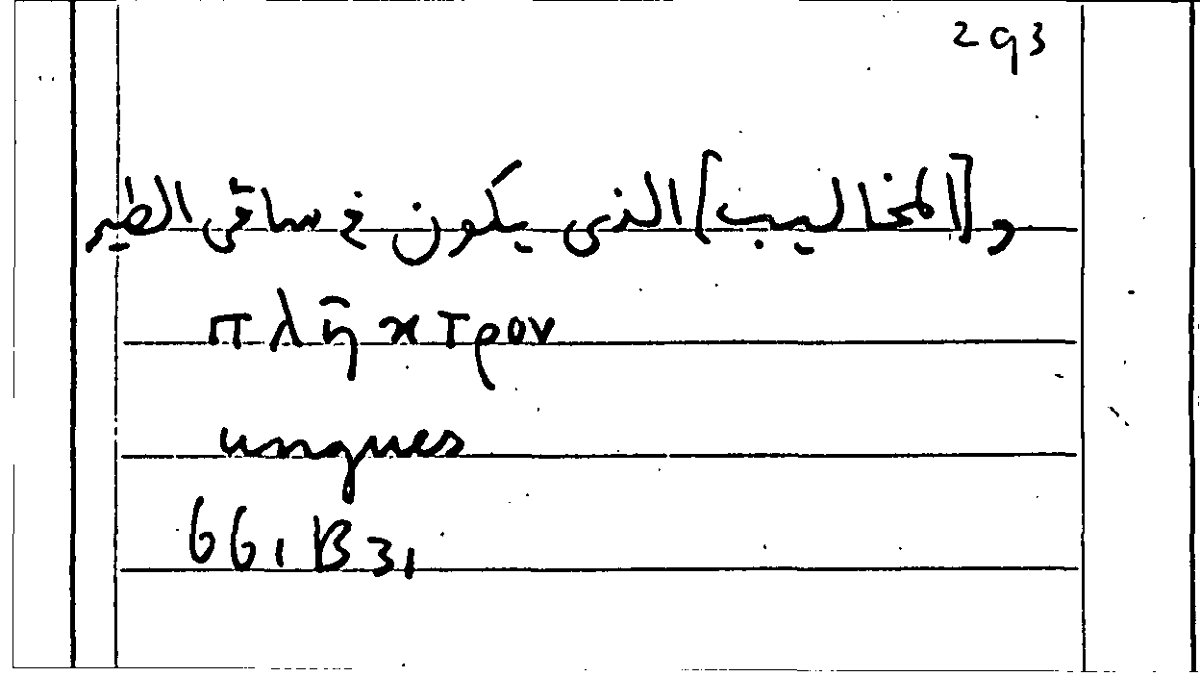 293
و [المخاليب] الذى يكون فى ساقى الطير
πλῆκτρον
ungues
661 B 31